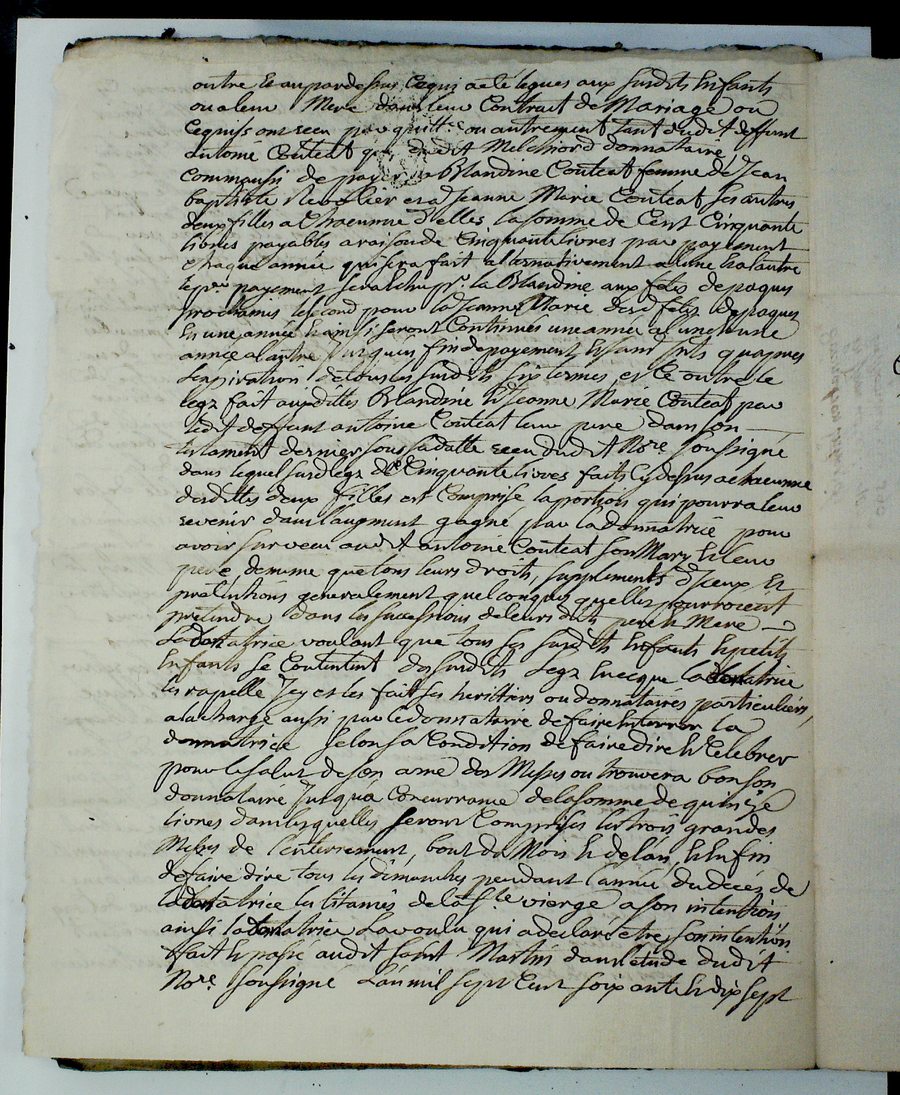 outre et aupardessus cequi a eté legués aux susdits Enfants
ou a leur Mere dans leur Contrat de Mariage ou
cequils ont recu par quitt.ce ou autrement tant dudit deffunt
antoine Conteat que dudit Melchiord donnataire
Comm'aussi de payer a Blandine Conteat femme de Jean
baptiste et a Jeanne Marie Conteat ses autres
deux filles a Chacunne d'elles la somme de Cent Cinquante
livres payables a raison de Cinquante livres par payement
Chaque année qui sera fait alternativement a lune et a lautre
le p.er payement a la Blandine aux fetes de paques
prochaines le second pour la Jeanne Marie des d fetes de paques
en une année et ainsi seront Continués une année a lune et une
année a lautre Jusques fin de payement et sans Jnts qu'apres
l'expiration de tous les susdits six termes, et ce outre le
legz fait auxdittes Blandine et Jeanne Marie Conteat par
ledit deffunt antoine Conteat leur pere dans son
testament dernier sous sa datte recu dudit No.re soussigné
dans lequel susd legz de Cinquante livres faits Cydessus a chacunne
desdittes deux filles est Comprise la portion qui pourra leur
revenir dans l'augment gagné par la donnatrice pour
avoir survecu audit antoine Conteat son Mary et leur
pere de meme que tous leurs droits, supplements d'Jceux Et
pretentions generalement quelconques quelles pourroient
pretendre dans les successions de leursdits pere et Mere
La donatrice voulant que tous ses susdits Enfants et petits
Enfants se Contentent des susdits legz la donatrice
les rapelle Jcy et les fait ses heritiers ou donnataires particuliers,
a la charge aussi par le donnataire de faire Enterrer la
donnatrice selon sa Condition de faire dire et Celebrer
pour le salut de son ame des Messes ou trouvera bon son
donnataire Jusqu'a Concurrance de la somme de quinze
livres dans lesquelles seront Comprises les trois grandes
Messes de l'enterrement, bout de Mois et de lan, et Enfin
de faire dire tous les dimanches pendant l'année du decés de
la donatrice les litanies de la s.te vierge a son intention
ainsi la donatrice la voulu qui a declaré etre son intention
ffait et passé audit saint Martin dans l'étude dudit
No.re soussigné L'an mil sept Cent soixante et dix sept